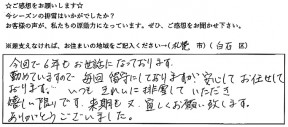 ☆ご感想をお願いします☆
今シーズンの排雪はいかがでしたか?
お客様の声が、私たちの原動力になっています。ぜひ、ご感想をお聞かせ下さい。
※差支えなければ、お住まいの地域をご記入ください→(札幌 市)(白石 区)
今回で6年もお世話になっております。
勤めていますので毎回留守にしておりますが安心してお任せして
おります。いつもきれいに排雪していただき
嬉しい限りです。来期も又、宜しくお願い致します。
ありがとうございました。